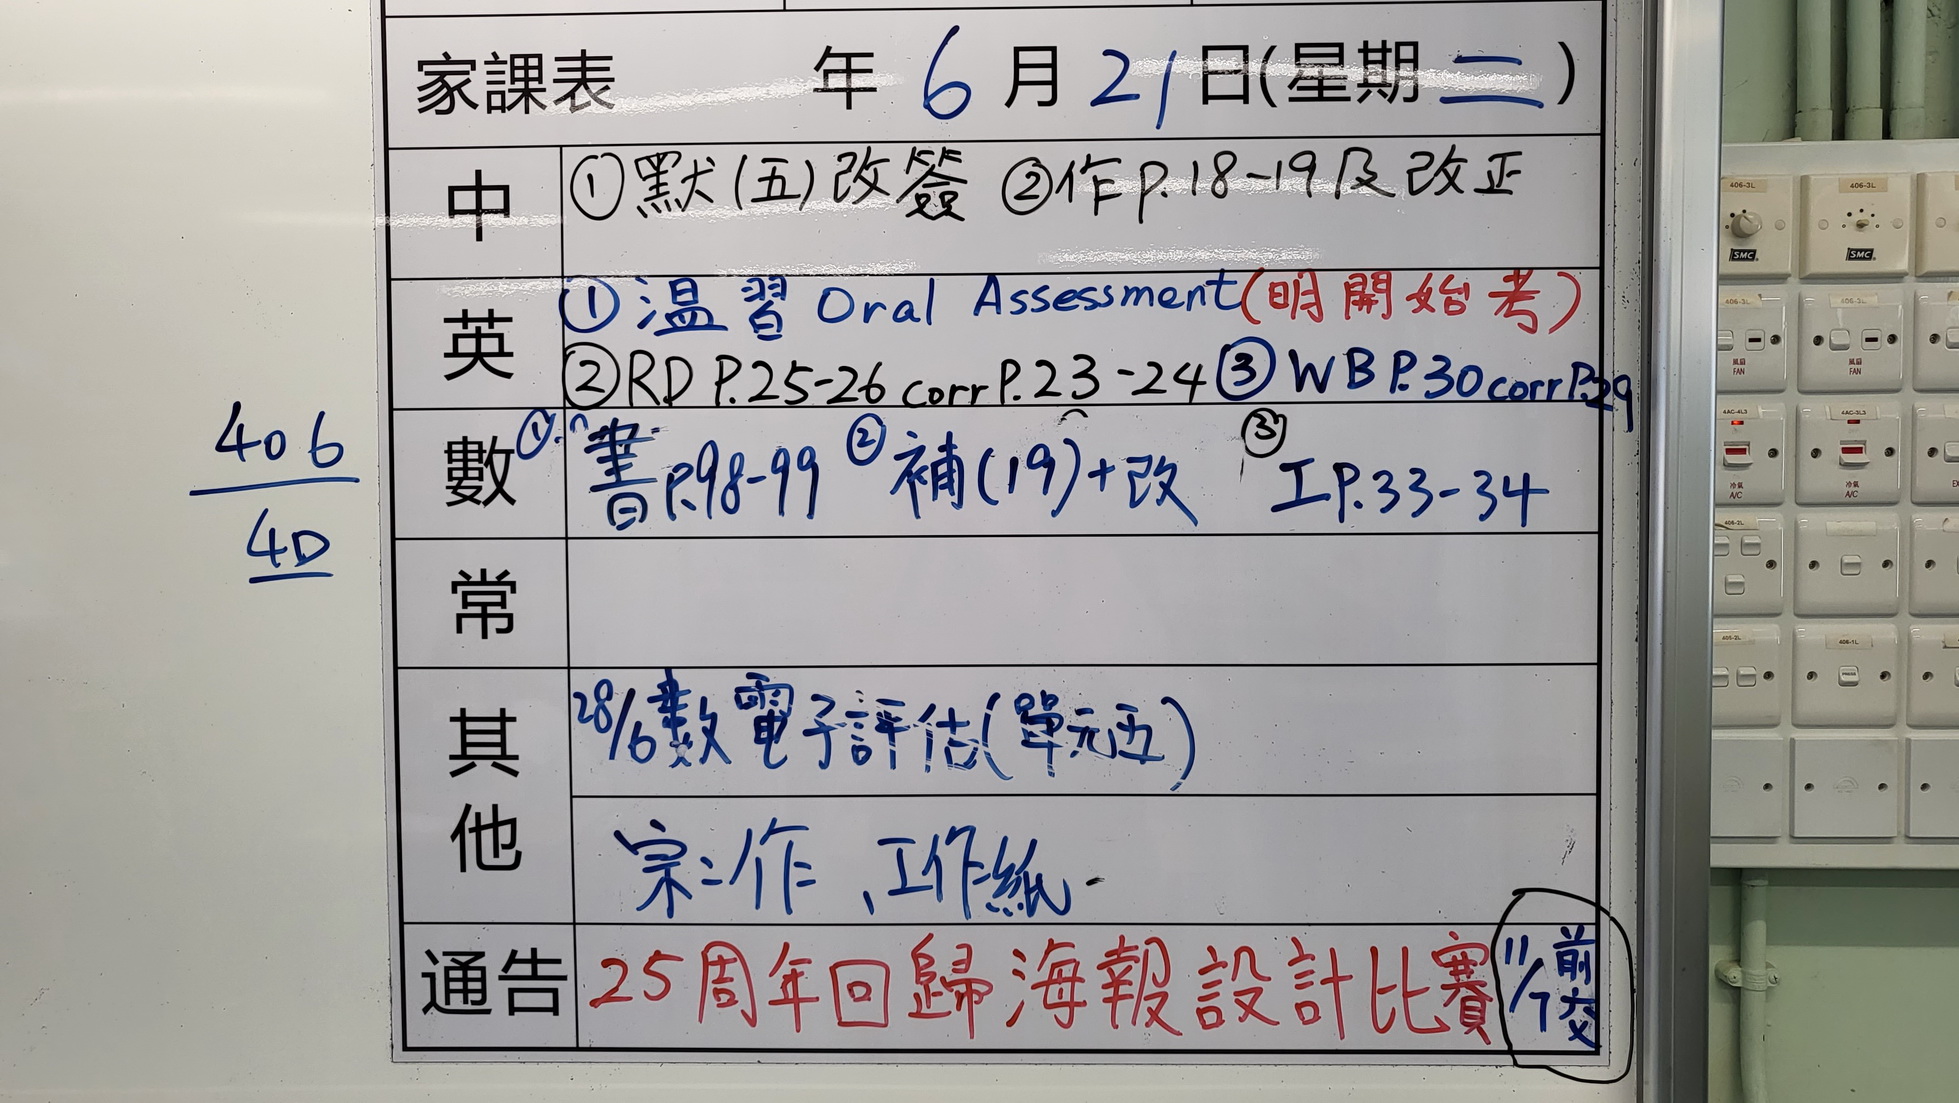 家課表 年 6 月 21 日(星期 二 )
中 ①默(五)改簽 ②作P.18-19及改正
英 ①温習 Oral Assessment(明開始考)
②RD P.25-26 corr P.23-24 ③WB P.30 corr P.29
數 ①書P.98-99 ②補(19)+改 ③工P.33-34
406
4D
常
其他 28/6數電子評估(單元五)
宗:作、工作紙
通告 25周年回歸海報設計比賽 11/7前交
406-3L
406-3L
SMC
SMC
406-3L
406-3L
風扇
FAN
風扇
FAN
4AC-4L3
4AC-3L3
冷氣
A/C
冷氣
A/C
406-2L
406-1L
PRESS